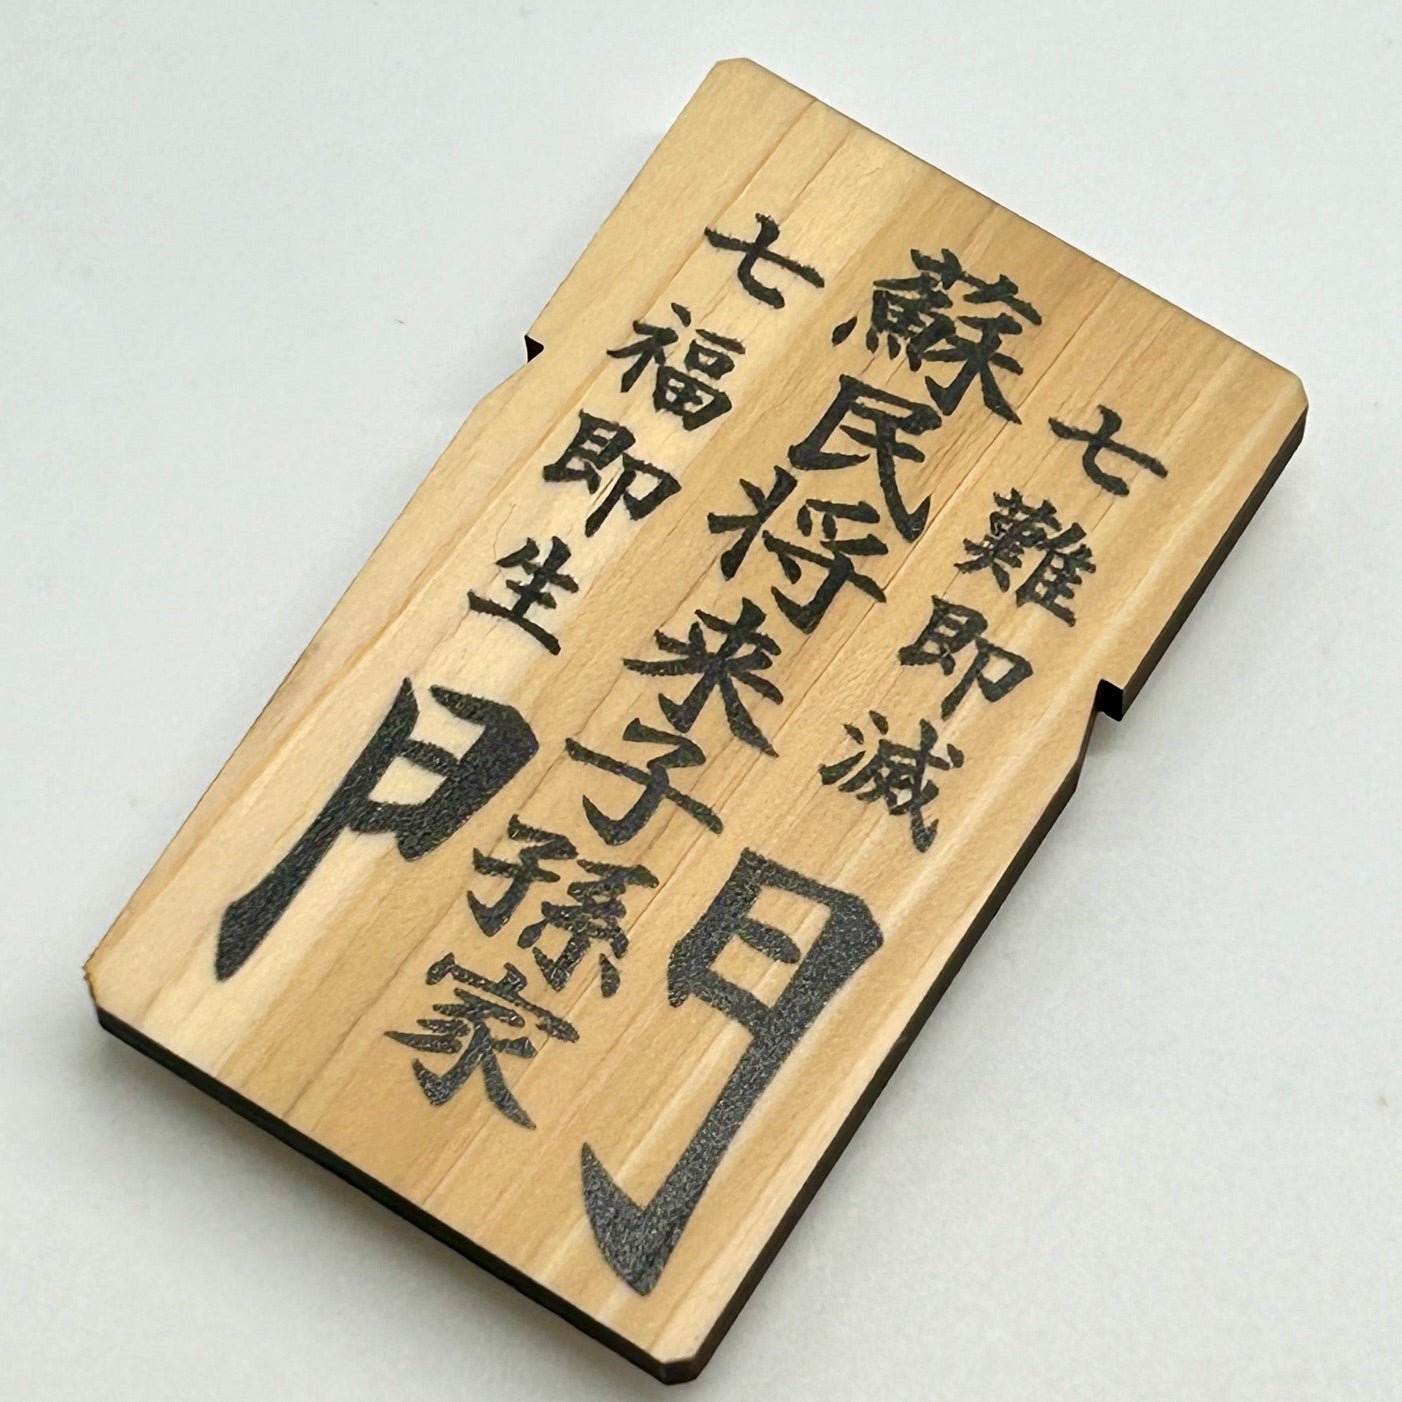 七難即滅
蘇民将来子孫家門
七福即生